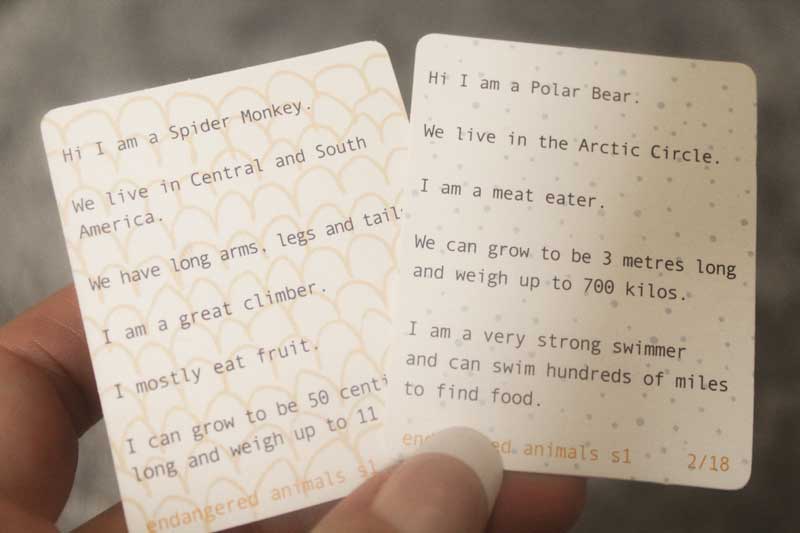 Hi I am a Spider Monkey.
We live in Central and South
America.
We have long arms, legs and
I am a great climber.
I mostly eat fruit.
I can grow to be 50
long and weigh up to 11
endangered animals s1
Hi I am a Polar Bear.
We live in the Arctic Circle.
I am a meat eater.
We can grow to be 3 metres long
and weigh up to 700 kilos.
I am a very strong swimmer
and can swim hundreds of miles
to find food.
animals s1 2/18